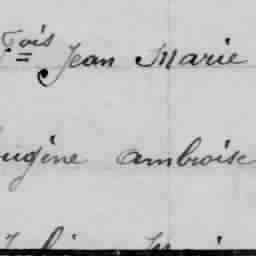 Fois Jean Marie
ugène ambroise